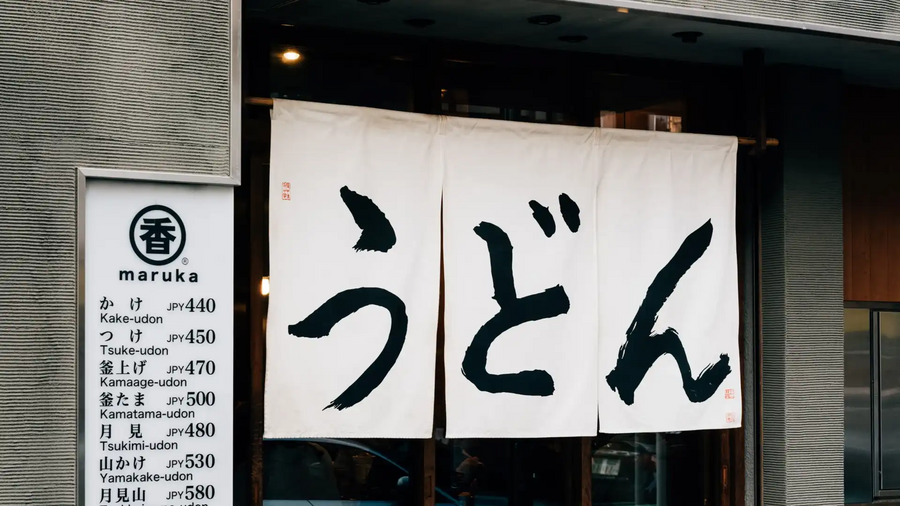 香
®
maruka
かけ JPY440
Kake-udon
つけ JPY450
Tsuke-udon
釜上げ JPY470
Kamaage-udon
釜たま JPY500
Kamatama-udon
月見 JPY480
Tsukimi-udon
山かけ JPY530
Yamakake-udon
月見山 JPY580
うどん